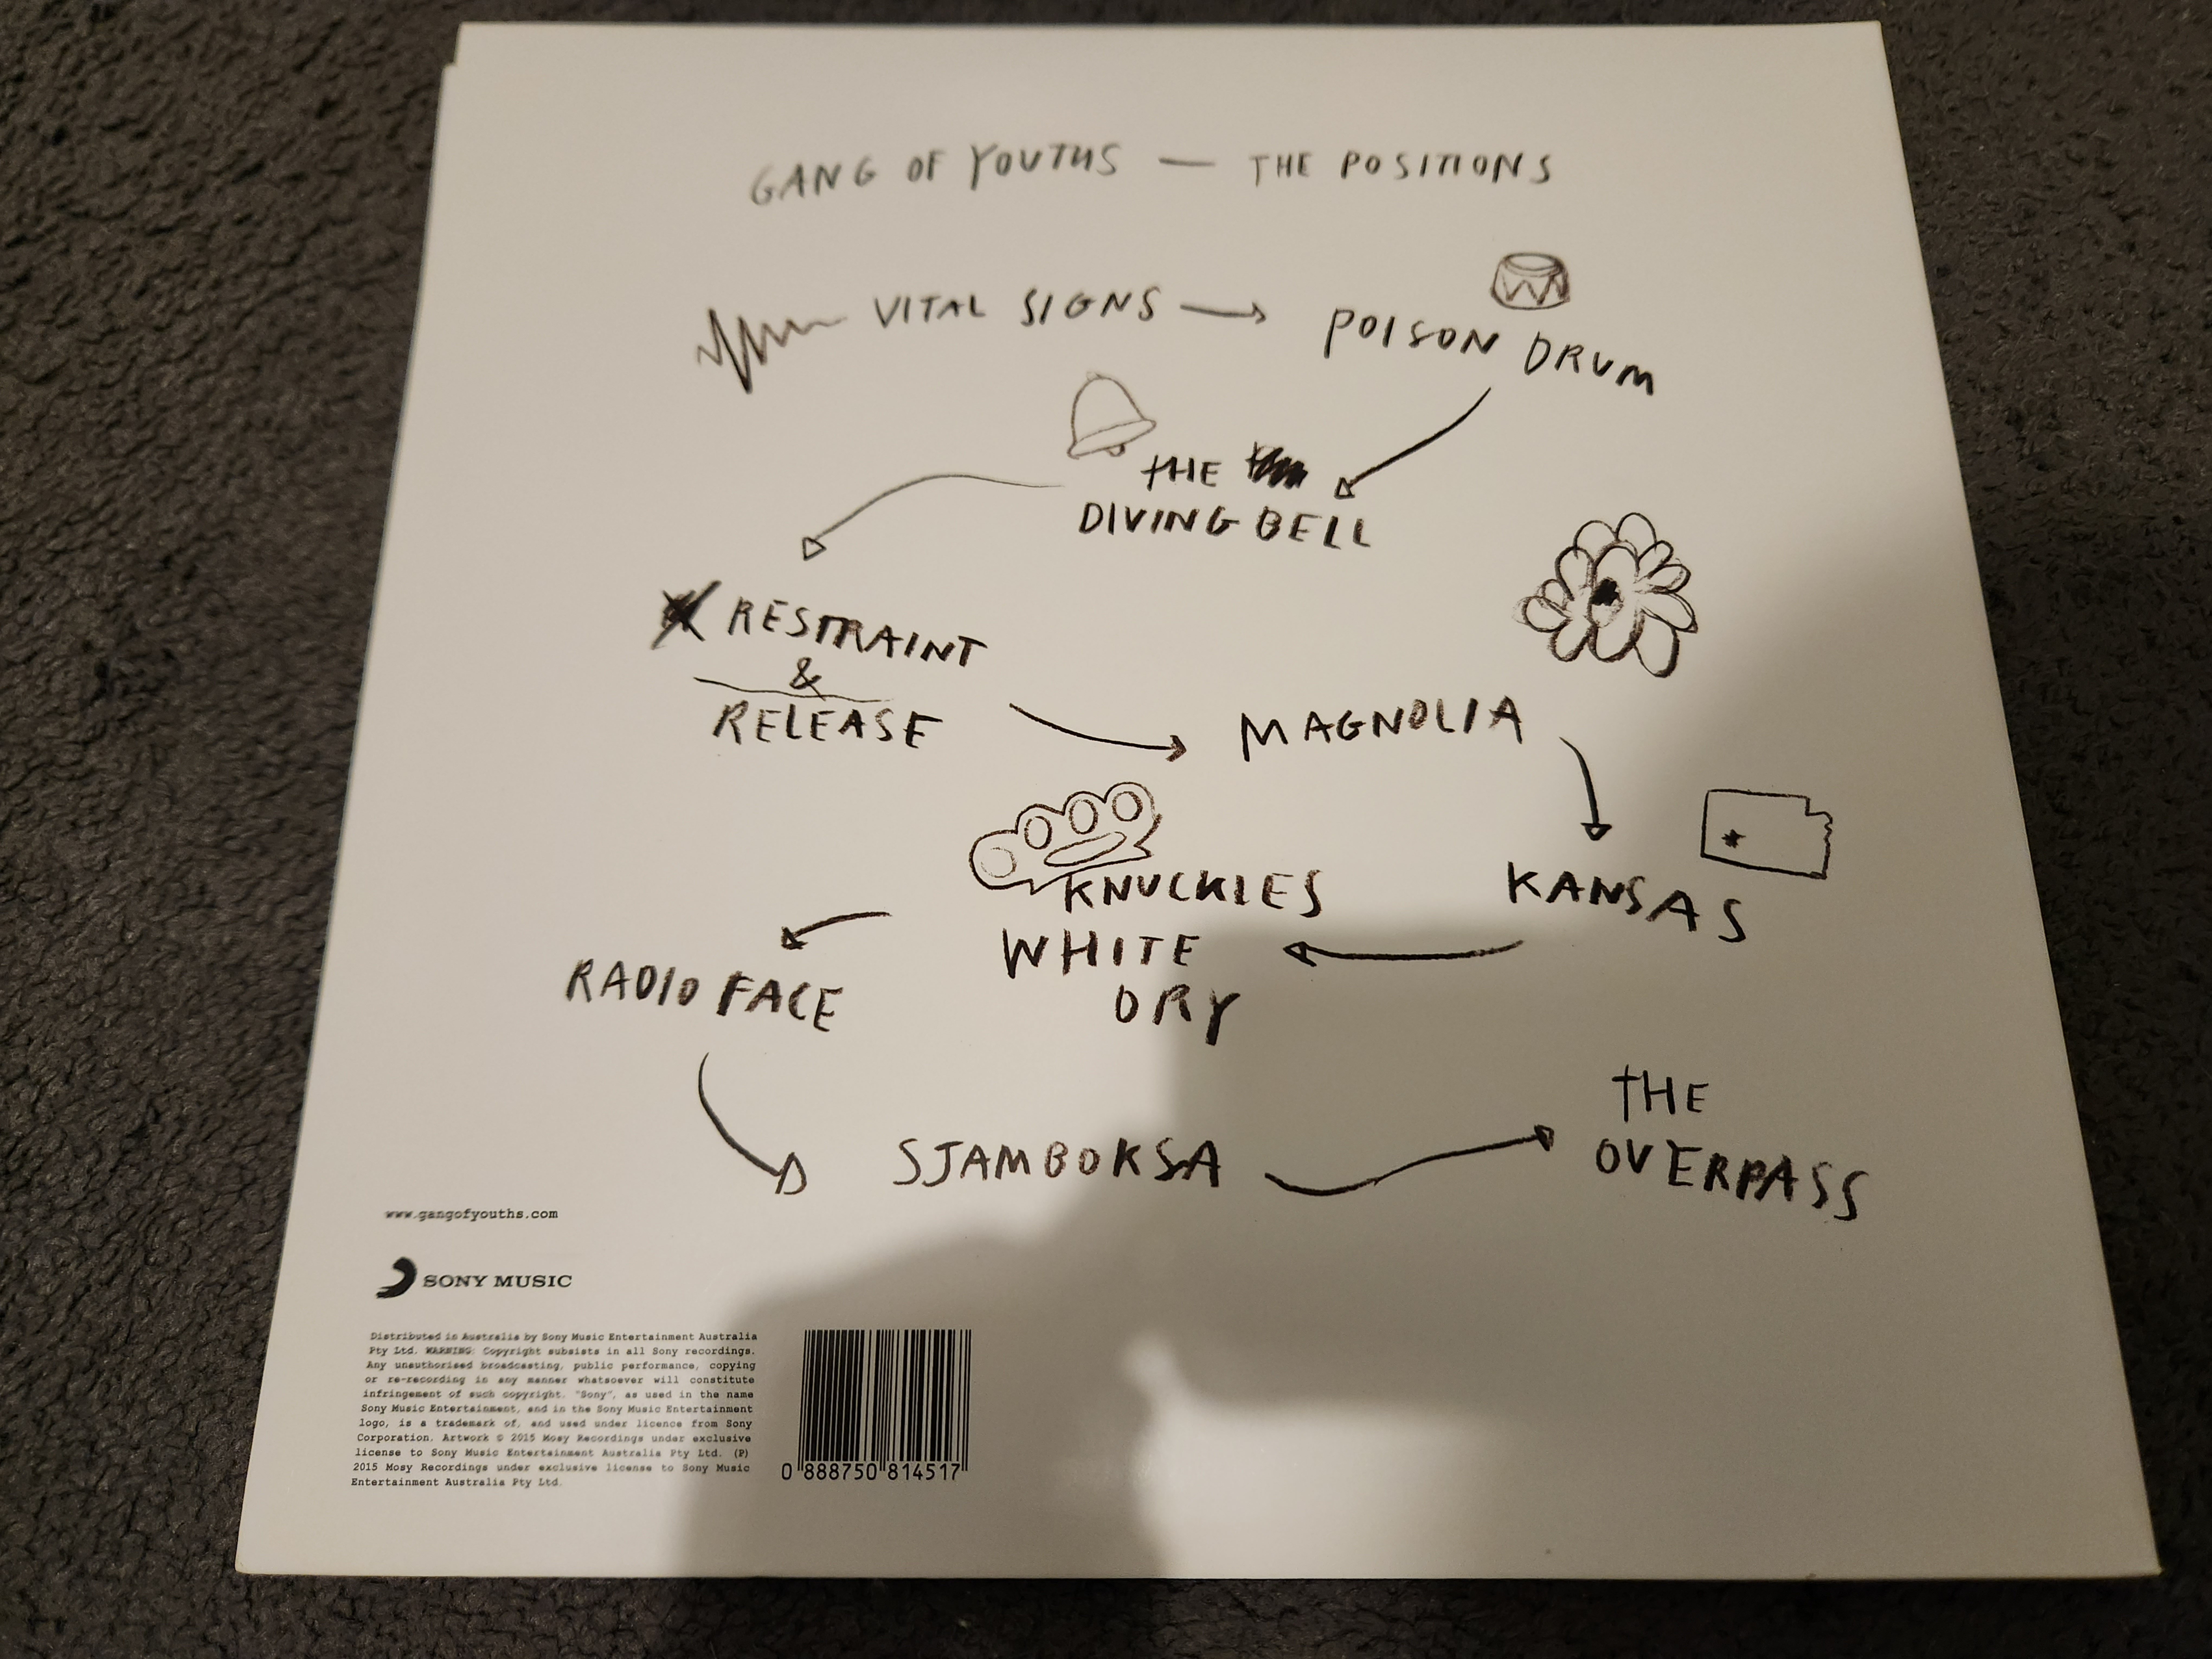 GANG OF YOUTHS — THE POSITIONS
VITAL SIGNS
POISON DRUM
THE
DIVING BELL
RESTRAINT
&
RELEASE
MAGNOLIA
KANSAS
KNUCKLES
WHITE
DRY
RADIO FACE
SJAMBOKSA
THE
OVERPASS
www.gangofyouths.com
SONY MUSIC
Distributed in Australia by Sony Music Entertainment Australia
Pty Ltd. WARNING: Copyright subsists in all Sony recordings.
Any unauthorised broadcasting, public performance, copying
or re-recording in any manner whatsoever will constitute
infringement of such copyright. "Sony", as used in the name
Sony Music Entertainment, and in the Sony Music Entertainment
logo, is a trademark of, and used under licence from Sony
Corporation. Artwork © 2015 Mosy Recordings under exclusive
license to Sony Music Entertainment Australia Pty Ltd. (P)
2015 Mosy Recordings under exclusive license to Sony Music
Entertainment Australia Pty Ltd.
0 888750 814517